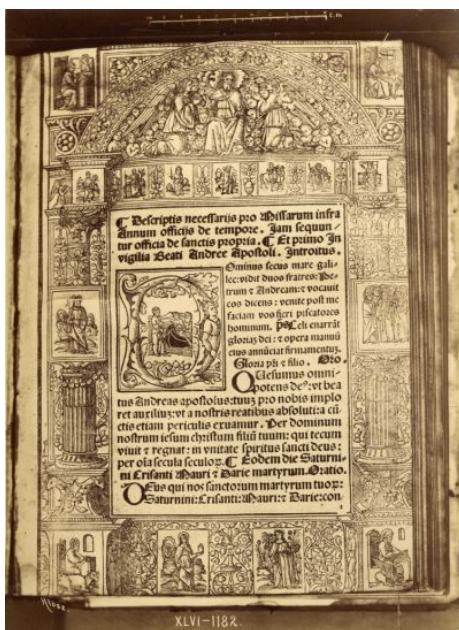 cm
¶ Descriptis necessarijs pro Missarum infra
Annum officijs de tempore. Jam sequun-
tur officia de sanctis propria. ¶ Et primo In
vigilia Beati Andree Apostoli. Introitus.
Ominus secus mare gali
lee: vidit duos fratres: Pe-
trum ⁊ Andream: ⁊ vocauit
eos dicens: venite post me
faciam vos fieri piscatores
hominum. p̄s Celi enarrāt
gloriā dei: ⁊ opera manuū
eius annūciat firmamentuꝫ.
Gloria pr̄i ⁊ filio. Oro.
QUesumus omni-
potens deꝰ: vt bea
tus Andreas apostolus: tuuꝫ pro nobis implo
ret auxiliuꝫ: vt a nostris reatibus absoluti: a cū
ctis etiam periculis exuamur. Per dominum
nostrum iesum christum filiū tuum: qui tecum
viuit ⁊ regnat: in vnitate spiritus sancti deus:
per oīa secula seculoꝝ. ¶ Eodem die Saturni-
ni Crisanti Mauri ⁊ Darie martyrum. Oratio.
DEus qui nos sanctorum martyrum tuoꝝ:
Saturnini: Crisanti: Mauri: ⁊ Darie: con
XLVI-1182.